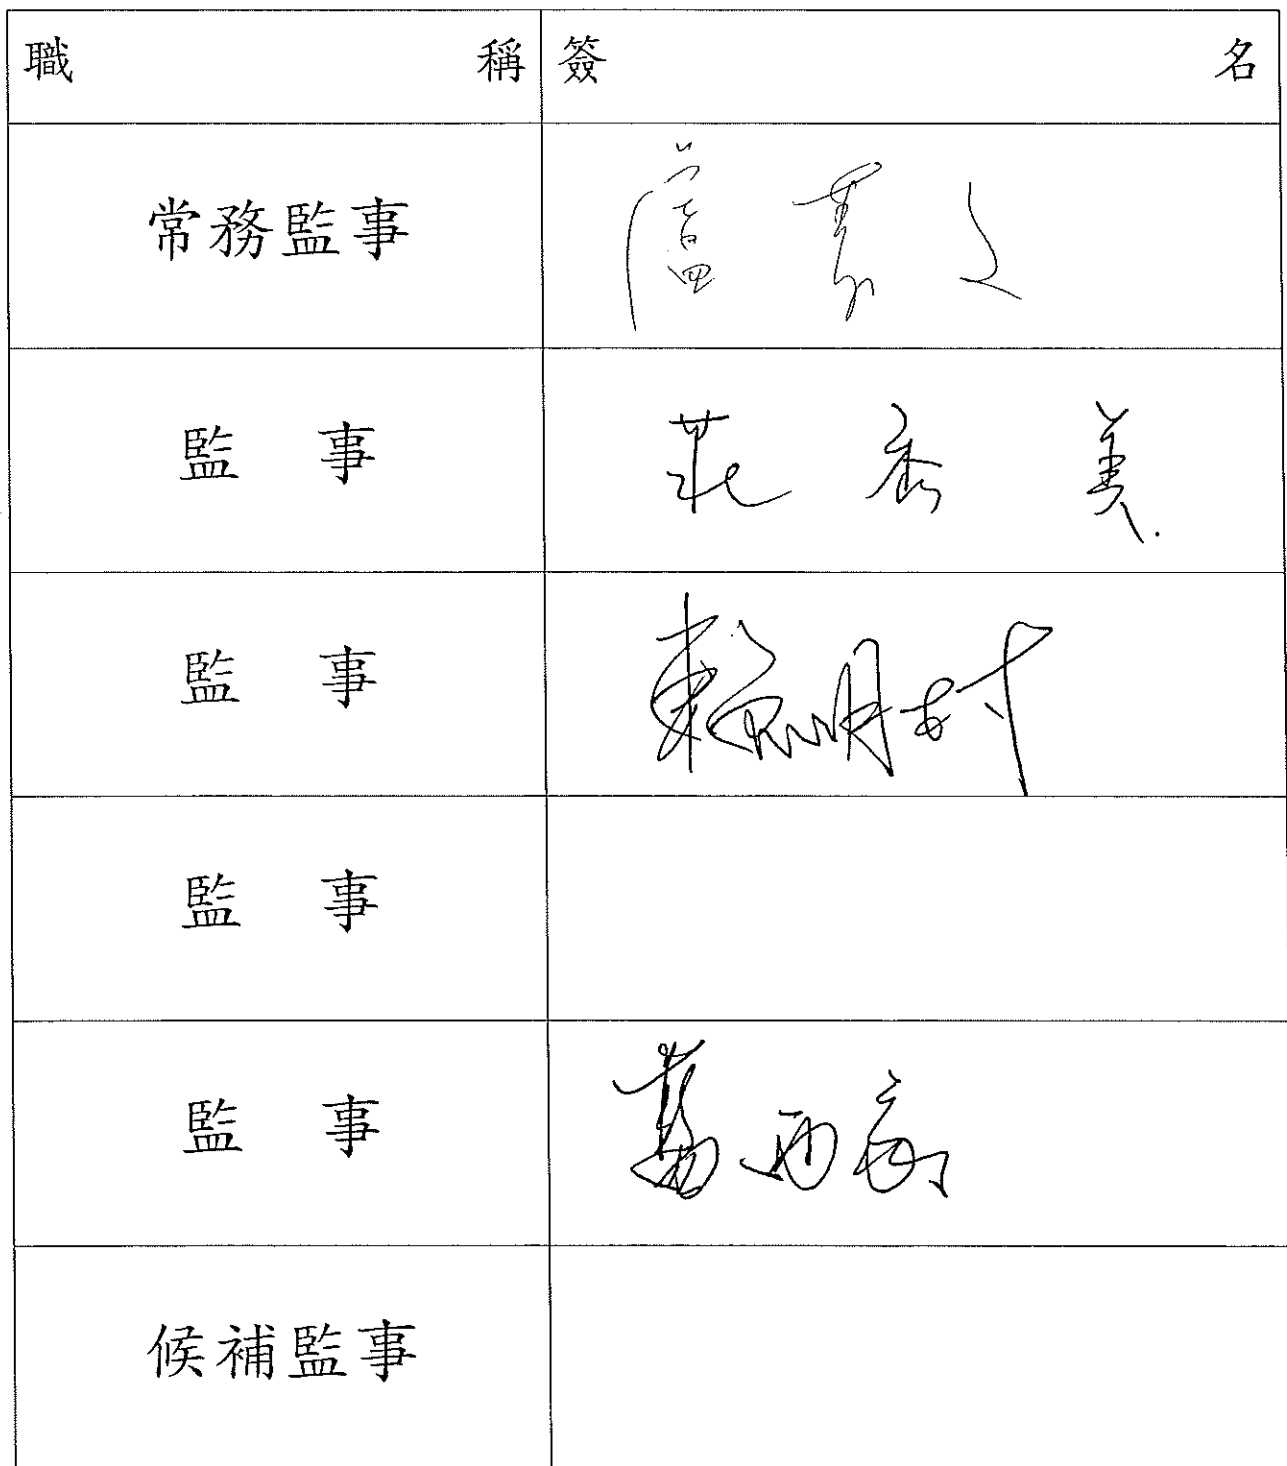 職稱 簽名
常務監事
監事 范秀美
監事 賴明村
監事
監事
候補監事